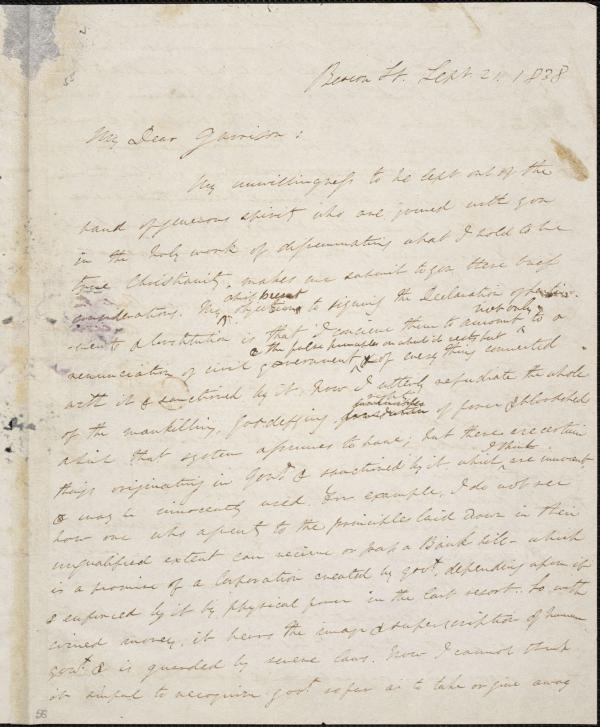 Beacon St. Sept. 21. 1838
My Dear Garrison:
My unwillingness to be kept out of the
band of generous spirits who are joined with you
in the holy work of disseminating what I hold to be
true Christianity, makes me submit to you these brief
considerations. My chief present objections to signing the Declaration of Senti-
-ments & Constitution is that I conceive them to amount not only to a
renunciation of civil government & the false principles on which it rests, but of every thing connected
with it & sanctioned by it. Now I utterly repudiate the whole
of the mankilling, God-defying right of power & bloodshed
which that system assumes to have; but there are certain
things originating in Govt. & sanctioned by it which, I think, are innocent
& may be innocently used. For example, I do not see
how one who assents to the principles laid down in their
unqualified extent can receive or pass a Bank bill - which
is a promise of a Corporation created by govt. depending upon it
& enforced by it by physical power in the last resort. So with
coined money, it bears the image & superscription of human
govt. & is guarded by severe laws. Now I cannot think
it sinful to recognize govt. so far as to take or give away
56